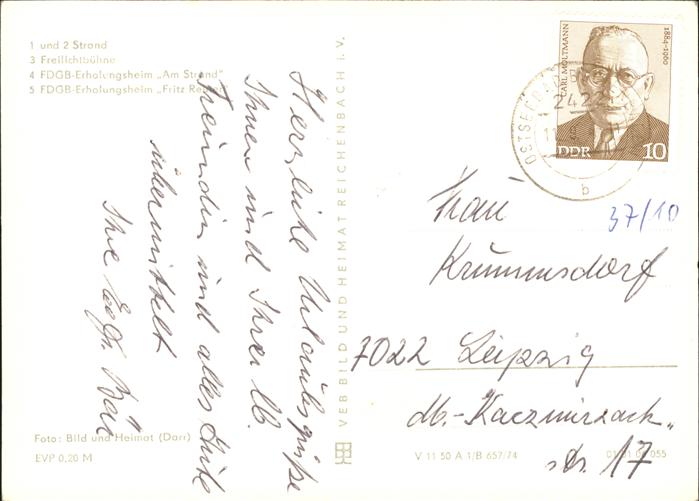 1 und 2 Strand
3 Freilichtbühne
4 FDGB-Erholungsheim „Am Strand"
5 FDGB-Erholungsheim „Fritz
Herzliche Urlaubsgrüße
Ihnen und Ihrer lb.
Freundin und alles Gute
übermittelt
Ihre
VEB BILD UND HEIMAT REICHENBACH i. V.
CARL MOLTMANN
1884-1960
DDR 10
OSTSEEBAD
2422
b
37/10
Frau
Krummsdorf
7022 Leipzig
str. 17
Foto: Bild und Heimat (Darr)
EVP 0,20 M
V 11 50 A 1/B 657/74
055